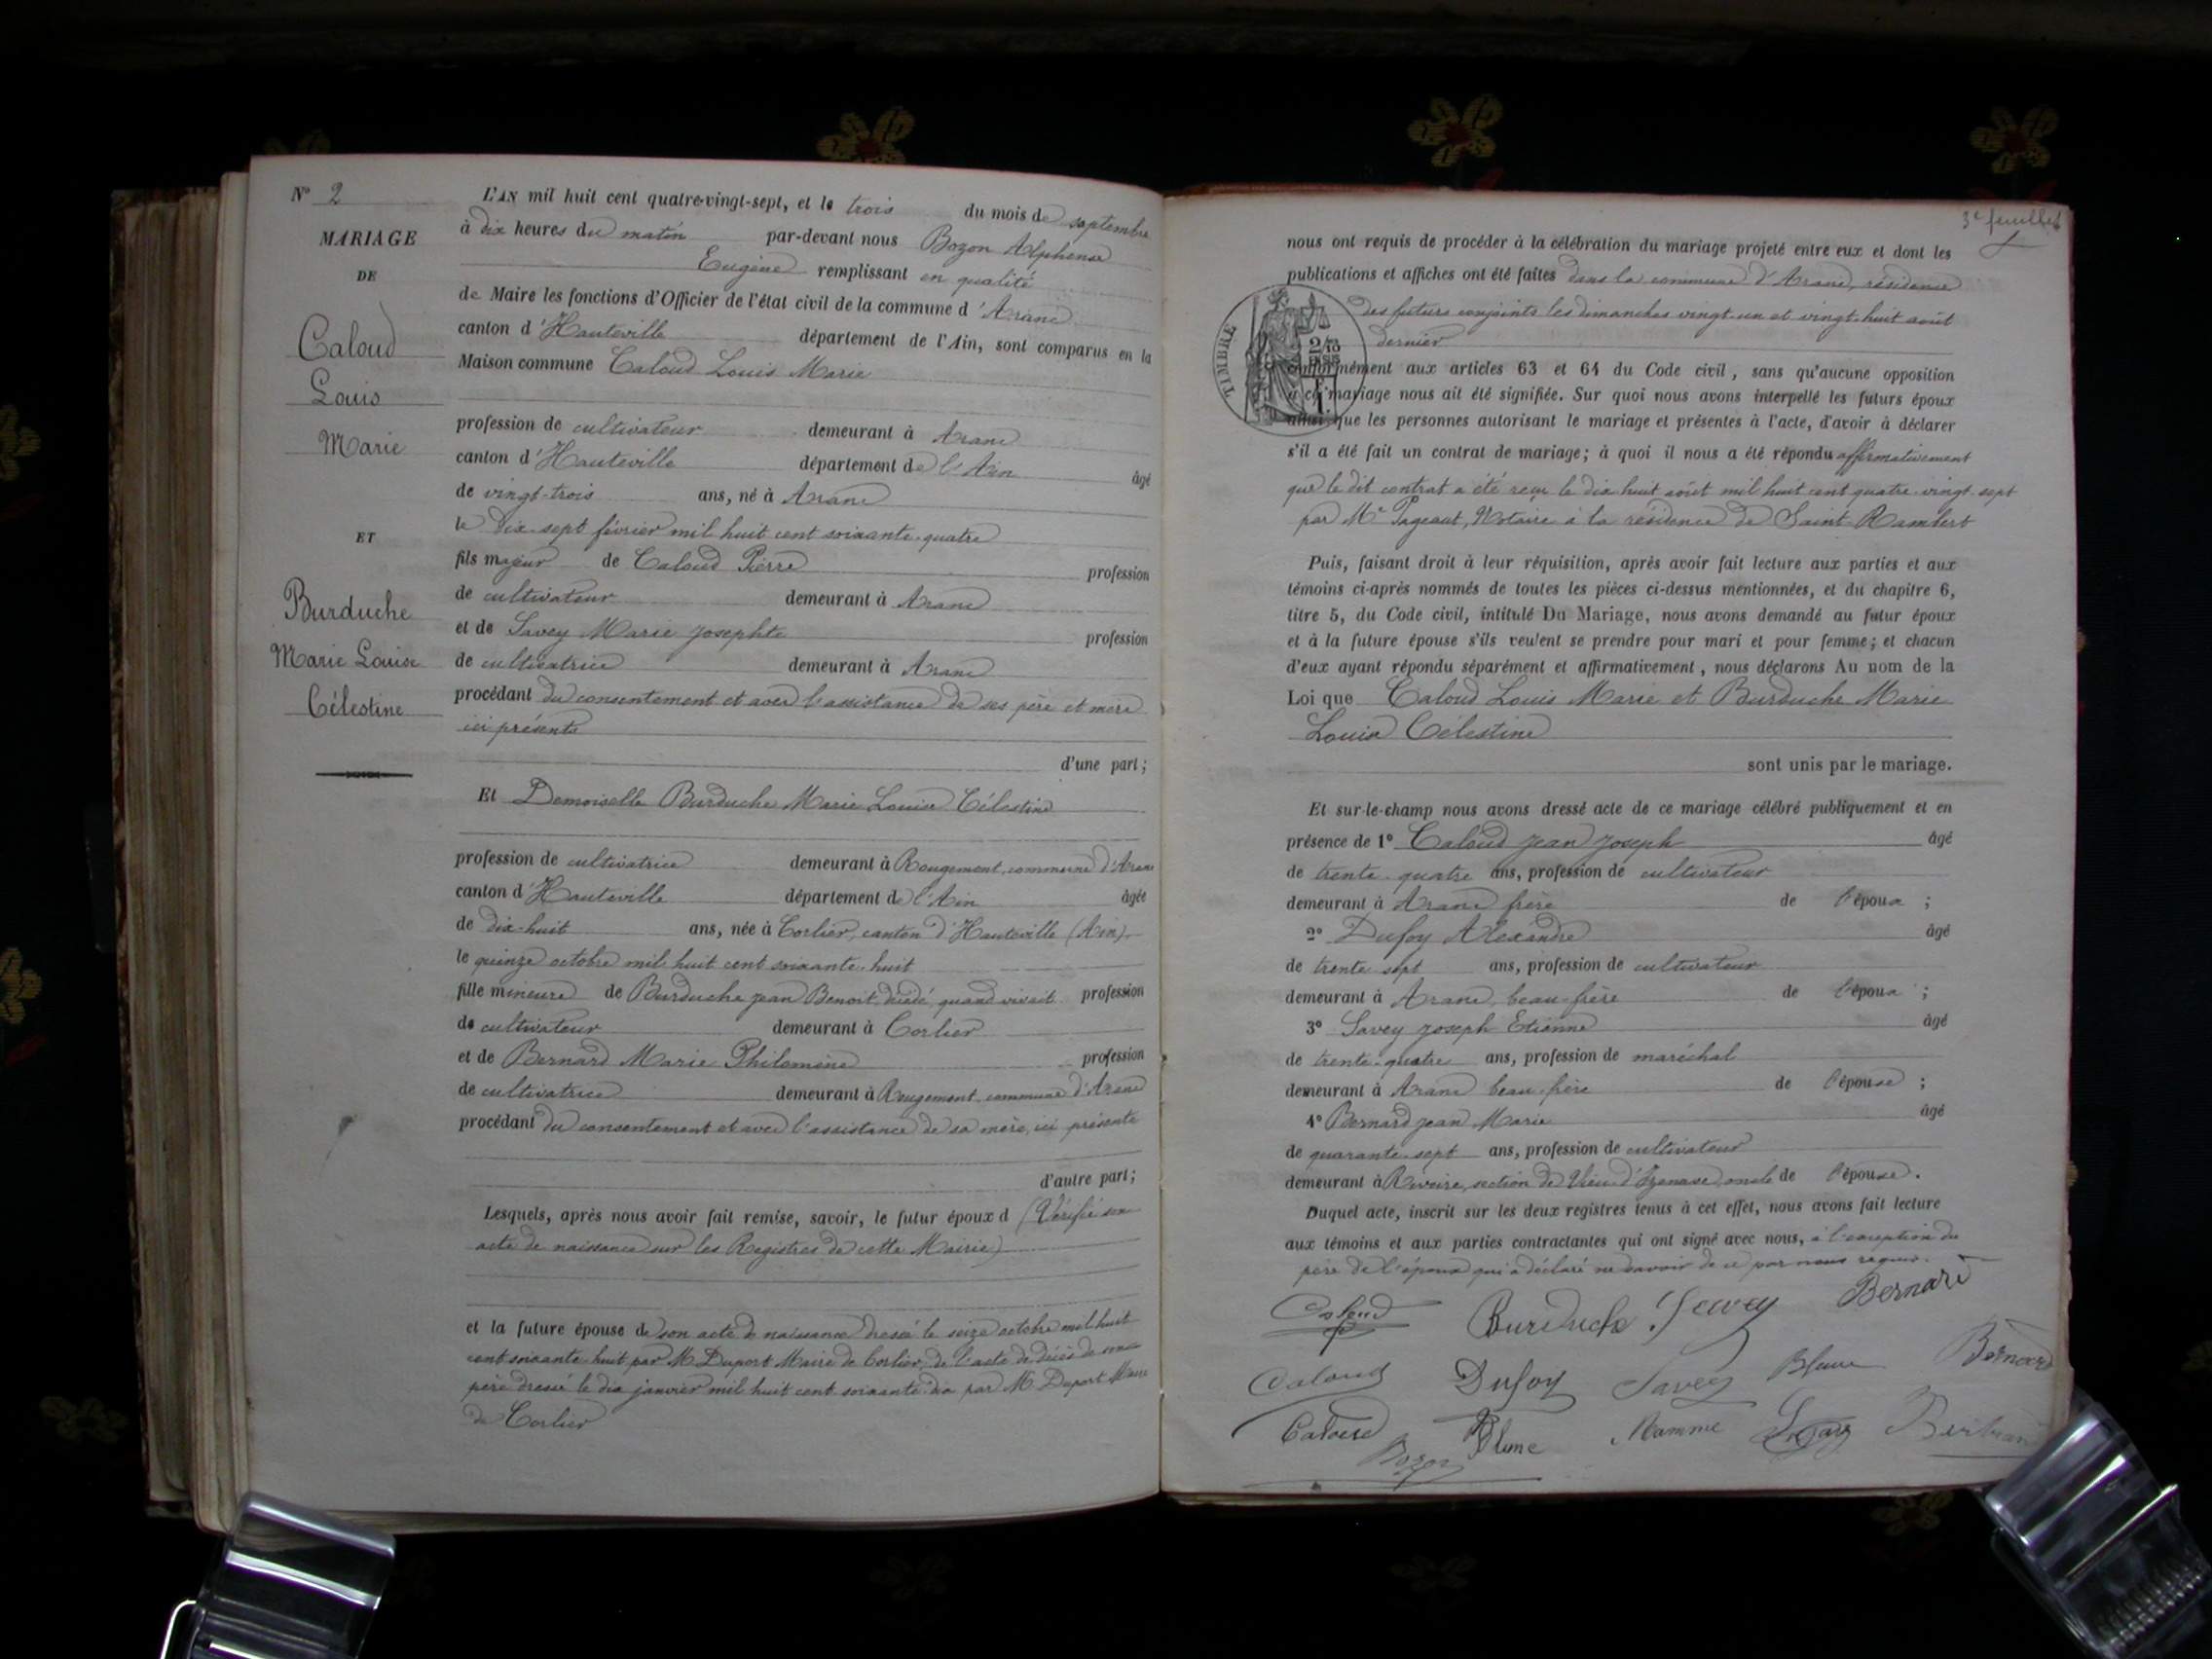 N° 2
MARIAGE
DE
Caloud
Louis
Marie
ET
Burduche
Marie Louise
Célestine
L'AN mil huit cent quatre-vingt-sept, et le trois du mois de septembre
à dix heures du matin par-devant nous Bozon Alphonse
Eugène remplissant en qualité
de Maire les fonctions d'Officier de l'état civil de la commune d'Aranc
canton d'Hauteville département de l'Ain, sont comparus en la
Maison commune Caloud Louis Marie
profession de cultivateur demeurant à Aranc
canton d'Hauteville département de l'Ain âgé
de vingt-trois ans, né à Aranc
le dix-sept février mil huit cent soixante-quatre
fils majeur de Caloud Pierre profession
de cultivateur demeurant à Aranc
et de Savey Marie Josephte profession
de cultivatrice demeurant à Aranc
procédant du consentement et avec l'assistance de ses père et mère
ici présents
d'une part;
Et Demoiselle Burduche Marie Louise Célestine
profession de cultivatrice demeurant à Rougemont, commune d'Aranc
canton d'Hauteville département de l'Ain âgée
de dix-huit ans, née à Corlier, canton d'Hauteville (Ain)
le quinze octobre mil huit cent soixante-huit
fille mineure de Burduche Jean Benoit, décédé, quand vivait profession
de cultivateur demeurant à Corlier
et de Bernard Marie Philomène profession
de cultivatrice demeurant à Rougemont commune d'Aranc
procédant du consentement et avec l'assistance de sa mère, ici présente
d'autre part;
Lesquels, après nous avoir fait remise, savoir, le futur époux d (Vérifié son
acte de naissance sur les Registres de cette Mairie)
et la future épouse de son acte de naissance dressé le seize octobre mil huit
cent soixante-huit par M. Duport Maire de Corlier, de l'acte de décès de son
père dressé le dix janvier mil huit cent soixante-dix par M. Duport Maire
de Corlier
3e feuillet
nous ont requis de procéder à la célébration du mariage projeté entre eux et dont les
publications et affiches ont été faites dans la commune d'Aranc, résidence
des futurs conjoints les dimanches vingt-un et vingt-huit août
dernier
TIMBRE
conformément aux articles 63 et 64 du Code civil, sans qu'aucune opposition
à ce mariage nous ait été signifiée. Sur quoi nous avons interpellé les futurs époux
ainsi que les personnes autorisant le mariage et présentes à l'acte, d'avoir à déclarer
s'il a été fait un contrat de mariage; à quoi il nous a été répondu affirmativement
que le dit contrat a été reçu le dix huit août mil huit cent quatre-vingt-sept
par Me Pageaut, Notaire à la résidence de Saint Rambert
Puis, faisant droit à leur réquisition, après avoir fait lecture aux parties et aux
témoins ci-après nommés de toutes les pièces ci-dessus mentionnées, et du chapitre 6,
titre 5, du Code civil, intitulé Du Mariage, nous avons demandé au futur époux
et à la future épouse s'ils veulent se prendre pour mari et pour femme; et chacun
d'eux ayant répondu séparément et affirmativement, nous déclarons Au nom de la
Loi que Caloud Louis Marie et Burduche Marie
Louise Célestine
sont unis par le mariage.
Et sur-le-champ nous avons dressé acte de ce mariage célébré publiquement et en
présence de 1° Caloud Jean Joseph âgé
de trente-quatre ans, profession de cultivateur
demeurant à Aranc frère de l'époux ;
2° Dufoy Alexandre âgé
de trente sept ans, profession de cultivateur
demeurant à Aranc, beau-frère de l'époux ;
3° Savey Joseph Etienne âgé
de trente-quatre ans, profession de maréchal
demeurant à Aranc beau-frère de l'épouse ;
4° Bernard Jean Marie âgé
de quarante-sept ans, profession de cultivateur
demeurant à Rivoire, section de Vieu d'Izenave, oncle de l'épouse.
Duquel acte, inscrit sur les deux registres tenus à cet effet, nous avons fait lecture
aux témoins et aux parties contractantes qui ont signé avec nous, à l'exception du
père de l'époux qui a déclaré ne savoir de ce par nous requis.
Caloud Burduche Savey Bernard
Caloud Dufoy Savey Blume Bernard
Caloud Blume Mamme Bertrand
Bozon